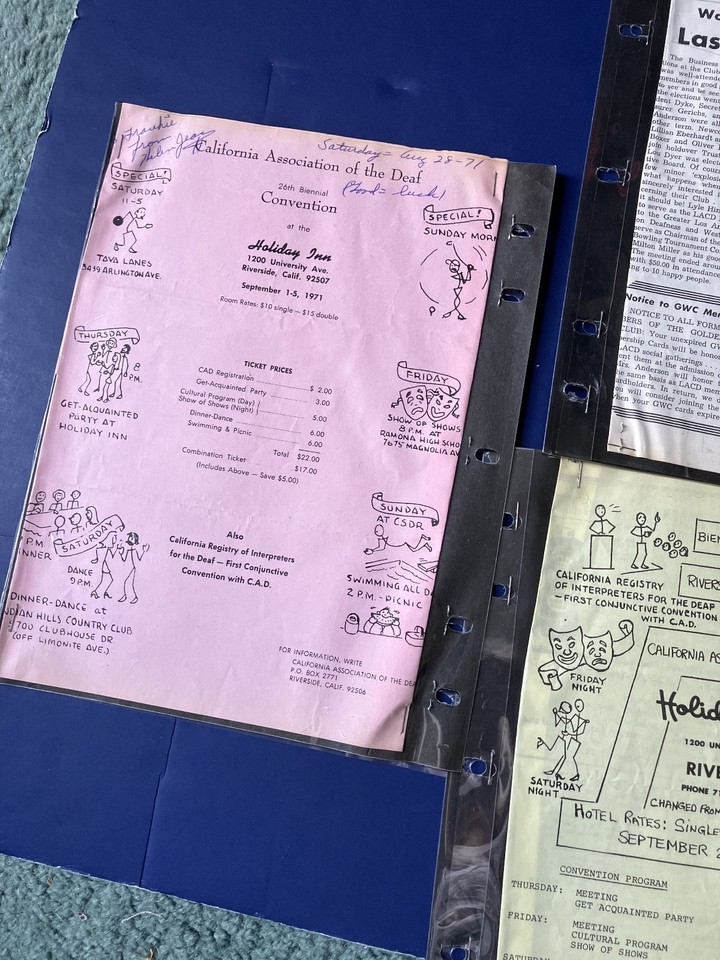 Frankie
From Jean
Saturday = Aug 28-71
California Association of the Deaf
26th Biennial
Convention
at the
Holiday Inn
1200 University Ave.
Riverside, Calif. 92507
September 1-5, 1971
Room Rates: $10 single — $15 double
SPECIAL!
SATURDAY
11-5
TAVA LANES
5439 ARLINGTON AVE.
SPECIAL!
SUNDAY MORN
THURSDAY
8
P.M.
GET-ACQUAINTED
PARTY AT
HOLIDAY INN
TICKET PRICES
CAD Registration $ 2.00
Get-Acquainted Party 3.00
Cultural Program (Day) )
Show of Shows (Night) ) 5.00
Dinner-Dance 6.00
Swimming & Picnic 6.00
Total $22.00
Combination Ticket $17.00
(Includes Above — Save $5.00)
FRIDAY
SHOW OF SHOWS
8 P.M. AT
RAMONA HIGH SCHO
7675 MAGNOLIA AV
P.M.
NNER
SATURDAY
DANCE
9 P.M.
DINNER-DANCE at
INDIAN HILLS COUNTRY CLUB
5700 CLUBHOUSE DR
(OFF LIMONITE AVE.)
Also
California Registry of Interpreters
for the Deaf — First Conjunctive
Convention with C.A.D.
SUNDAY
AT CSDR
SWIMMING ALL D
2 P.M. - PICNIC
FOR INFORMATION, WRITE
CALIFORNIA ASSOCIATION OF THE DEA
P.O. BOX 2771
RIVERSIDE, CALIF. 92506
Wo
Las
The Business
tions at the Club
was well-attende
members in good
to see and be see
the elections went
dent Dyke, Secret
surer Gerichs, and
Anderson were all
other term. Newc
Lillian Eberhardt an
Boxer and Oliver
join holdover Trus
Lou Dyer was elect
tive Board. Of cours
few minor 'explos
what happens whe
sincerely interested
cerning their Club
it should be! Lyle Hi
to serve as the LACD
to the Greater Los An
on Deafness and West
serve as Chairman of th
Bowling Tournament C
Milton Miller as his goo
The meeting ended aroun
with $50.00 in attendanc
ng to 10 happy people.
Notice to GWC Mem
NOTICE TO ALL FORM
BERS OF THE GOLDE
CLUB: Your unexpired GW
bership Cards will be honor
LACD social gatherings . . .
ent them at the admission d
Mrs. Anderson will honor
he same basis as LACD mem
ardholders. In return, we d
ou will consider joining the
hen your GWC cards expire
CALIFORNIA REGISTRY
OF INTERPRETERS FOR THE DEAF
—FIRST CONJUNCTIVE CONVENTION
WITH C.A.D.
BIEN
RIVERS
FRIDAY
NIGHT
SATURDAY
NIGHT
CALIFORNIA AS
Holid
1200 UN
RIVE
PHONE 7
CHANGED FROM
HOTEL RATES: SINGLE
SEPTEMBER 2
CONVENTION PROGRAM
THURSDAY: MEETING
GET ACQUAINTED PARTY
FRIDAY: MEETING
CULTURAL PROGRAM
SHOW OF SHOWS
SATURDAY